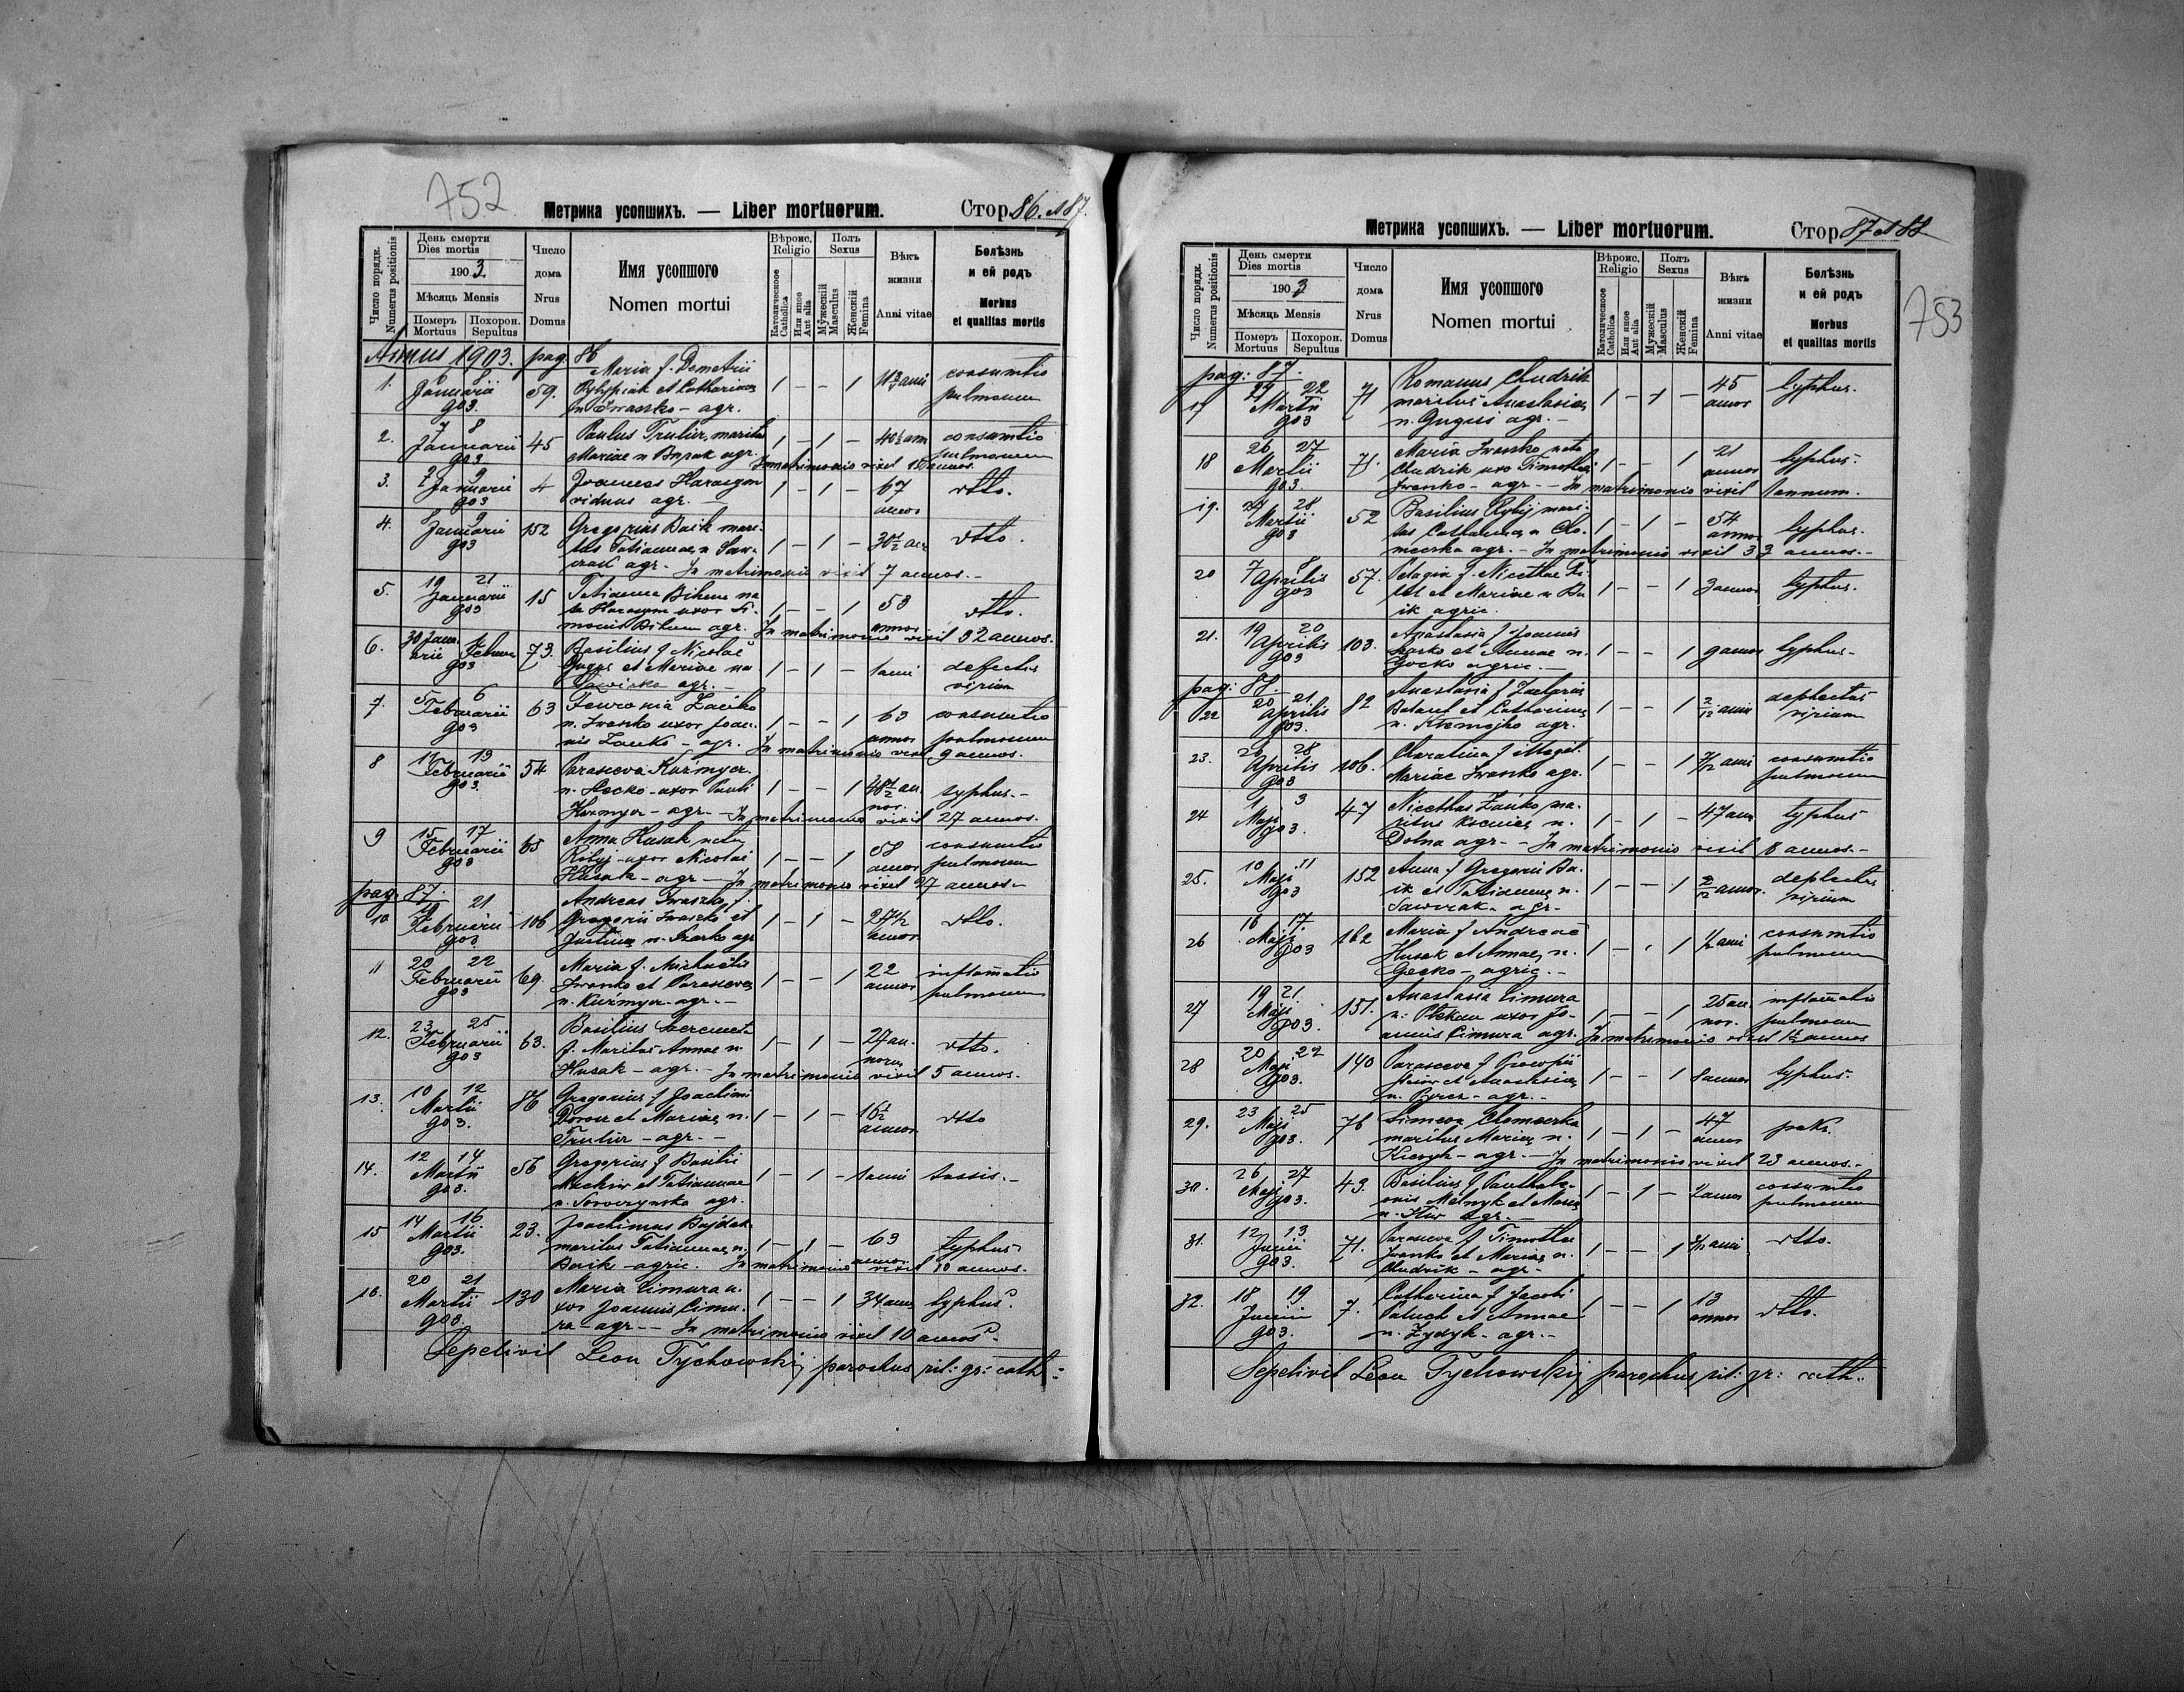 752
Метрика усопшихъ. — Liber mortuorum.
Стор. 86. et 87.
Число порядк. Numerus positionis
День смерти
Dies mortis
1903.
Мѣсяць Mensis
Померъ Mortuus
Похорон. Sepultus
Число дома Nrus Domus
Имя усопшого
Nomen mortui
Вѣроис. Religio
Католическое Catholica
Или иное Aut alia
Полъ Sexus
Мужескій Masculus
Женскій Femina
Вѣкъ жизни Anni vitae
Болѣзнь и ей родъ
Morbus et qualitas mortis
Annus 1903. pag. 86
1. Januarii 903. 59. Maria f. Demetrii
et Catharinae
n Iwaszko - agr. 1 - - 1 consumtio pulmonum
2. 7 8 Januarii 903 45 Paulus Trulier, maritus
Mariae n agr. 1 - 1 - 40½ ann consumtio pulmonum
In matrimonio vixit annos.
3. 7 9 Januarii 903 4 Joannes Harasym
viduus agr. 1 - 1 - 67 annos dtto.
4. 8 9 Januarii 903 152 Gregorius Baik mari-
tus Tatiannae n Saw-
agr. - In matrimonio vixit 7 annos. - 1 - 1 - 30½ dtto.
5. 19 21 Januarii 903 15 Tatianna Bihun na-
ta Harasym uxor Si-
monis Bihun agr. In matrimonio vixit 32 annos. 1 - - 1 53 annos dtto.
6. 30 Januarii Februar 903 73. Basilius f Nicolai
et Mariae na
agr. - 1 - 1 - 1 anni defectus virium
7. 5 6 Februarii 903 63 Fevronia Zaiko
n. Iwasko uxor Joan-
nis - agr. In matrimonio vixit 9 annos. 1 - - 1 63 annos consumtio pulmonum
8 19 Februarii 903. 54 Parasceva Kuźmycz
n. Hecko - uxor Pauli
Kuzmycz - agr. - In matrimonio vixit 27 annos. 1 - - 1 48½ annos. typhus. -
9 15 17 Februarii 903 65 Anna Husak nata
- uxor Nicolai
Husaka - agr - In matrimonio vixit 27 annos - 1 - - 1 58 annos consumtio pulmonum
pag: 87.
10 21 Februarii 903 106 Andreas Iwaszko f.
Gregorii Iwaszko et
Justinae n. agr 1 - 1 - annos dtto.
11 20 22 Februarii 903 69. Maria f. Michaelis
Iwanko et Parascevae
n. Kuźmycz - agr. - 1 - - 1 22 annos inflamatio pulmonum
12. 23 25 Februarii 903 63. Basilius
f. Maritus Annae n
Husak - agr. - In matrimonio vixit 5 annos. 1 - 1 - 27 an- dtto.
13. 10 12 Martii 903. 86 Gregorius f Joachimi
et Mariae n.
Trulier - agr. - 1 - 1 - 16½ annos dtto
14. 12 14 Martii 903. 56 Gregorius f Basilii
et Tatiannae
n. agr. 1 - 1 - 1 anni tussis. -
15 14 16 Martii 903. 23. Joachimus Bajdak
maritus Tatiannae n.
Baik - agric. In matrimonio vixit 10 annos. 1 - 1 - 63 annos typhus
16. 20 21 Martii 903. 130 Maria Cimura u-
xor Joannis Cimu-
ra - agr - - In matrimonio vixit 10 annos - 1 - - 1 34 annos typhus.
Sepelivit Leon Tychowskij parochus rit: gr: cath:
753
Метрика усопшихъ. — Liber mortuorum.
Стор. 87 et 88
Число порядк. Numerus positionis
День смерти
Dies mortis
1903
Мѣсяць Mensis
Померъ Mortuus
Похорон. Sepultus
Число дома Nrus Domus
Имя усопшого
Nomen mortui
Вѣроис. Religio
Католическоое Catholica
Или иное Aut alia
Полъ Sexus
Мужескій Masculus
Женскій Femina
Вѣкъ жизни Anni vitae
Болѣзнь и ей родъ
Morbus et qualitas mortis
pag: 87.
17 22 Martii 903 71 Romanus Chudrik
maritus Anastasiae
n. agr. - 1 - 1 - 45 annos typhus.
18 26 27 Martii 903. 71. Maria Iwanko nata
Chudrik uxor Timothei
Iwanko - agr. - In matrimonio vixit 1 annum. 1 - - 1 21 annos typhus.
19. 28 Martii 903 52 Basilius Rybij mari-
tus Catharinae n Clo-
meczka agr. - In matrimonio vixit 33 annos. - 1 - 1 - 54 annos typhus.
20 7 8 Aprilis 903 57. Pelagia f. Nicethae
et Mariae n Ba-
ik agric. 1 - - 1 3 annos typhus.
21. 19 20 Aprilis 903 103. Anastasia f Joannis
et Annae n.
Gocko agric. - 1 - - 1 9 annos typhus -
pag: 88.
22 20 21. Aprilis 903. 82 Anastasia f Zachariae
et Catharinae
n. agr. 1 - - 1 2/12 anni defectus virium
23. 28 Aprilis 903 106. Charitina f illegit.
Mariae Iwanko agr. 1 - - 1 7/12 anni consumtio pulmonum
24 1 3 Maji 903. 47 Nicethas Zaiko, ma-
ritus n.
Dolna agr. - In matrimonio vixit 8 annos. - 1 - 1 - 47 ann typhus
25. 10 11 Maji 903 152 Anna f Gregorii Ba-
ik et Tatiannae n.
Sawczak - agr - 1 - - 1 2/12 annos. defectus virium
26 16 17. Maji 903 162 Maria f Andreae
Husak et Annae, n.
Gecko - agric. - 1 - - 1 ½ anni consumtio pulmonum
27 19 21. Maji 903. 151. Anastasia Cimura
n. uxor Jo-
annis Cimura agr. In matrimonio vixit annos 1 - - 1 25 an- inflamatio pulmonum
28 20 22 Maji 903. 140 Parasceva f Procopii
et Anastasiae
n. - agr. - 1 - - 1 8 annos typhus.
29. 23 25 Maji 903. 76 Simeon Chomeczka
maritus Mariae n.
- agr. - In matrimonio vixit 23 annos. - 1 - 1 - 47 annos
30. 26 27 Maji 903. 43. Basilius f Panthale-
onis Melnyk et Mariae
n. agr. - 1 - 1 - consumtio pulmonum
31. 12 13 Junii 903. 71. Parasceva f Timothei
Iwanko et Mariae n.
Chudrik - agr - 1 - - 1 anni dtto.
32. 18 19 Junii 903. 7. Catharina f Jacobi
et Annae
n. Zydyk - agr. - 1 - - 1 13 annos dtto.
Sepelivit Leon Tychowskij parochus rit: gr: cath.